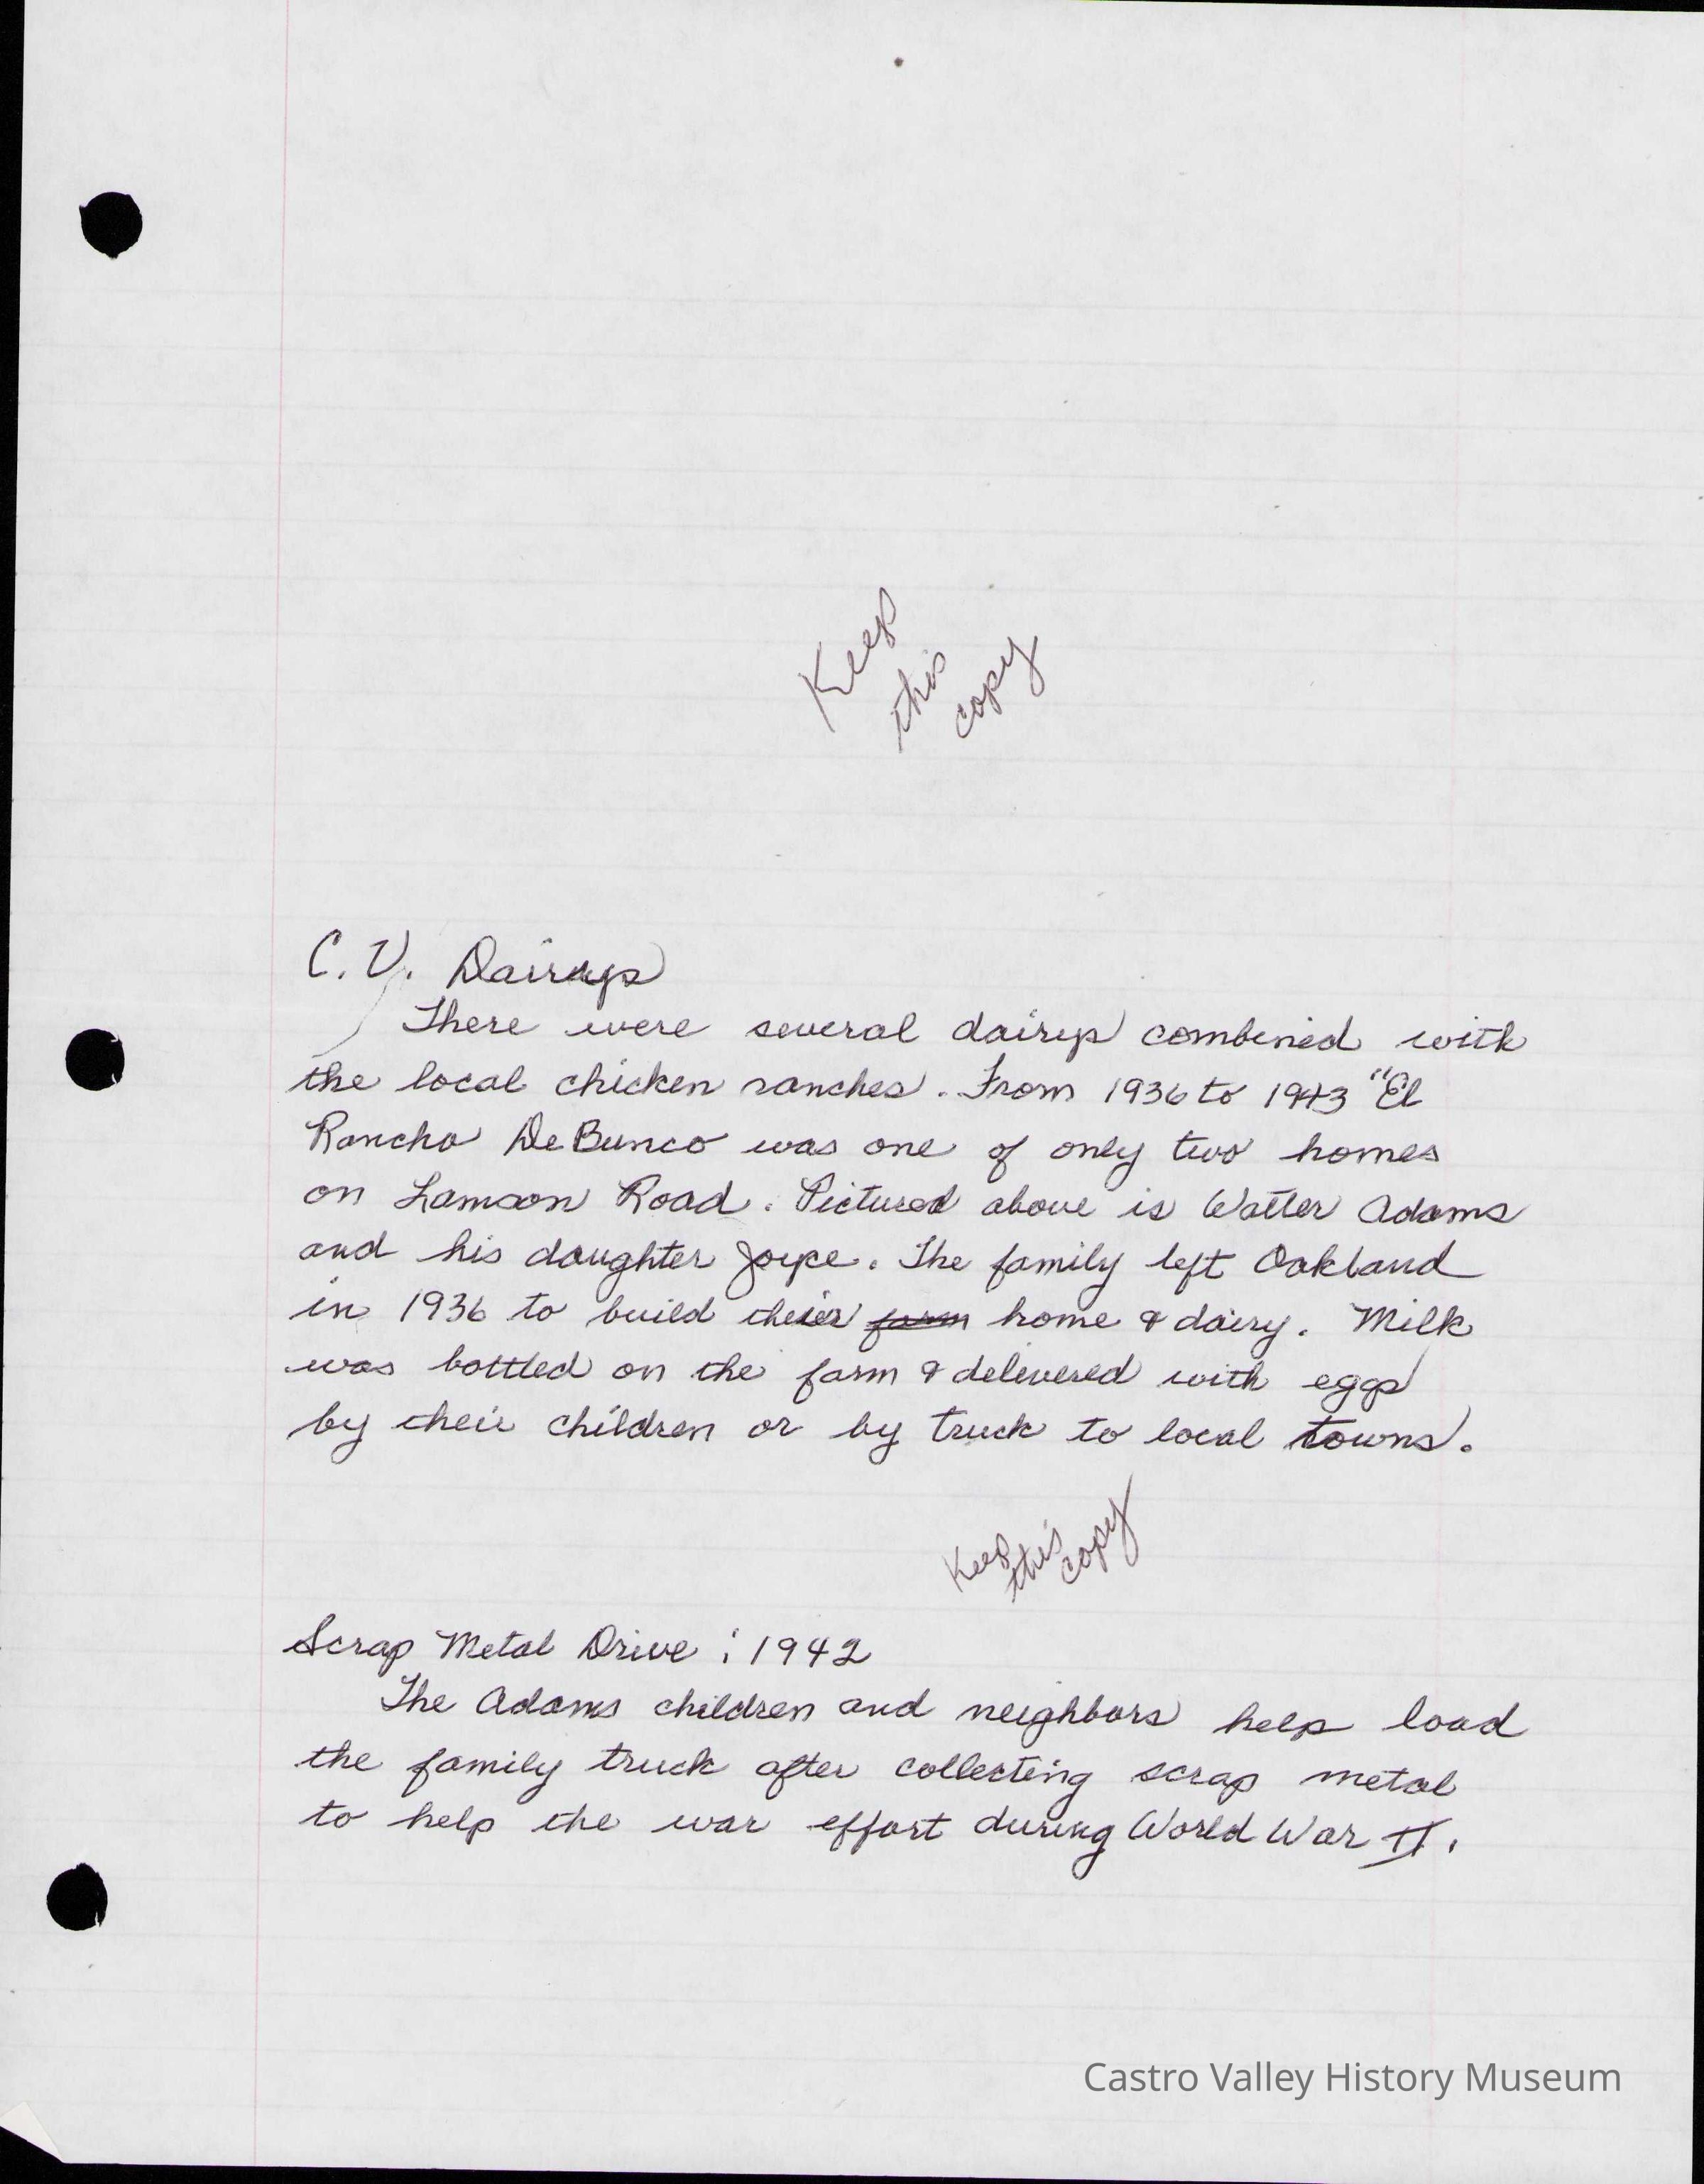 Keep
this
copy
C. V. Dairys
There were several dairys combined with
the local chicken ranches. From 1936 to 1943 "El
Rancho De Bunco was one of only two homes
on Lamson Road. Pictured above is Walter Adams
and his daughter Joyce. The family left Oakland
in 1936 to build their farm home & dairy. Milk
was bottled on the farm & delivered with eggs
by their children or by truck to local towns.
Keep
this
copy
Scrap Metal Drive : 1942
The Adams children and neighbors help load
the family truck after collecting scrap metal
to help the war effort during World War II.
Castro Valley History Museum